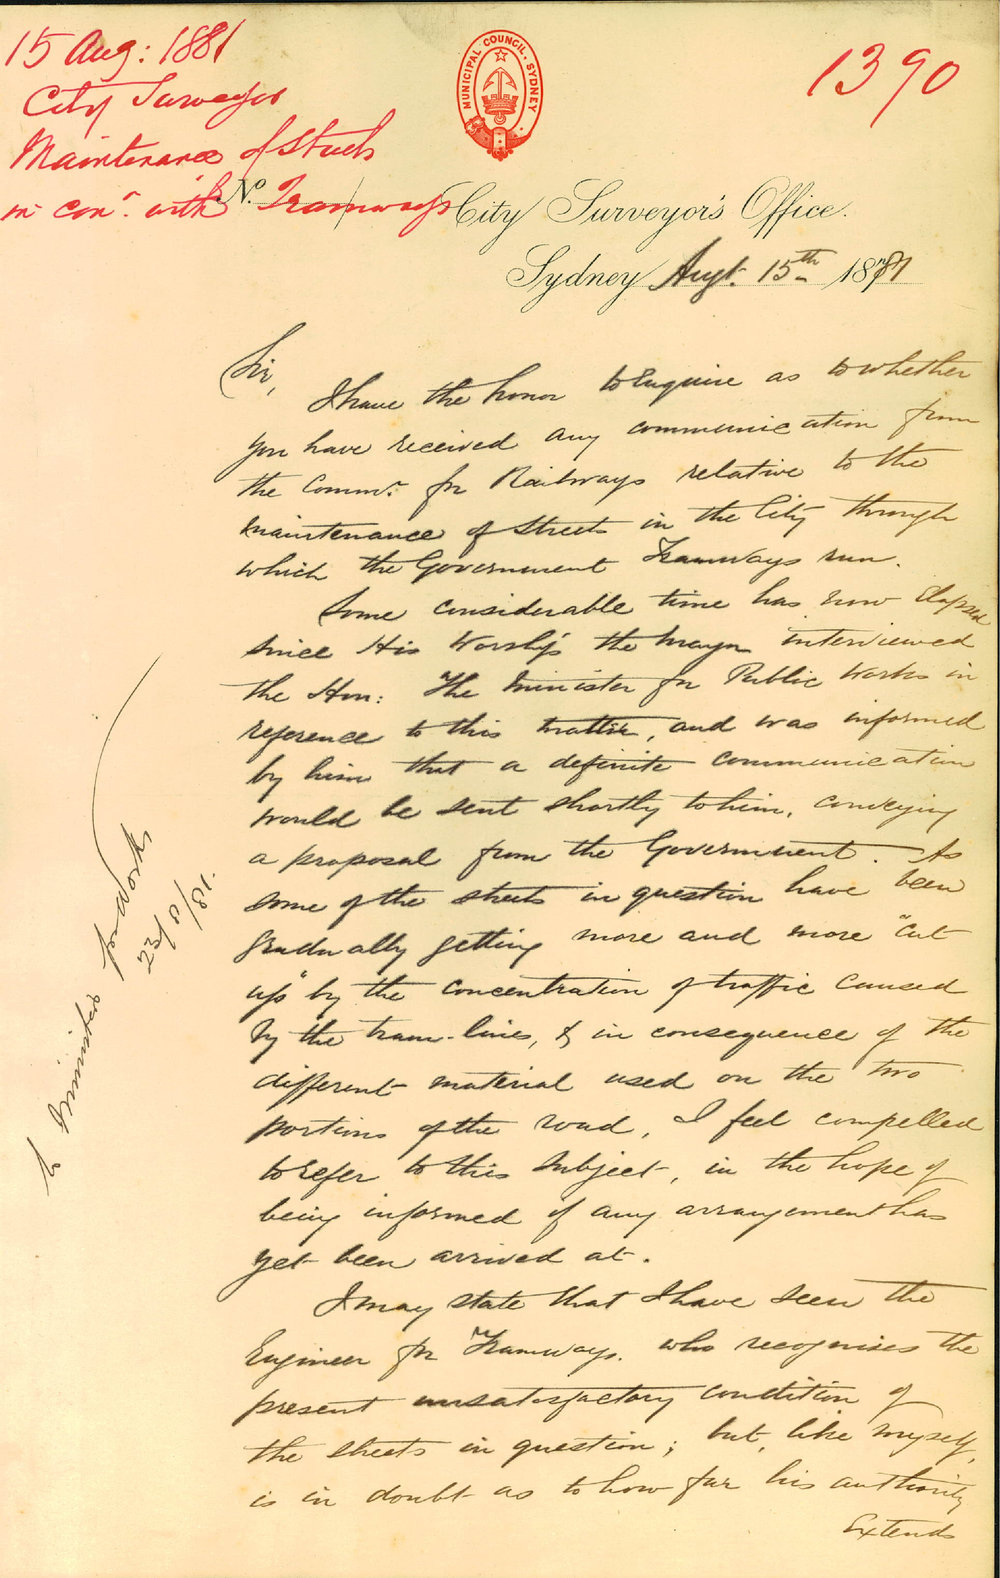 15 Aug: 1881
City Surveyor
Maintenance of Streets
in con.n with Tramways
1390
MUNICIPAL COUNCIL. SYDNEY
No.
City Surveyor's Office.
Sydney Augt. 15th 1881
Sir,
I have the honor to Enquire as to whether
you have received any communication from
the Commr. for Railways relative to the
maintenance of Streets in the City through
which the Government Tramways run.
Some considerable time has now elapsed
since His Worship the Mayor interviewed
the Hon: The Minister for Public Works in
reference to this matter, and was informed
by him that a definite communication
would be sent shortly to him, conveying
a proposal from the Government. As
some of the streets in question have been
gradually getting more and more "cut
up" by the concentration of traffic caused
by the tram-lines, & in consequence of the
different material used on the two
portions of the road, I feel compelled
to refer to this subject, in the hope of
being informed if any arrangement has
yet been arrived at.
I may state that I have seen the
Engineer for Tramways. who recognises the
present unsatisfactory condition of
the streets in question; but, like myself,
is in doubt as to how far his authority
Extends
To Minister for Works
23/8/81.